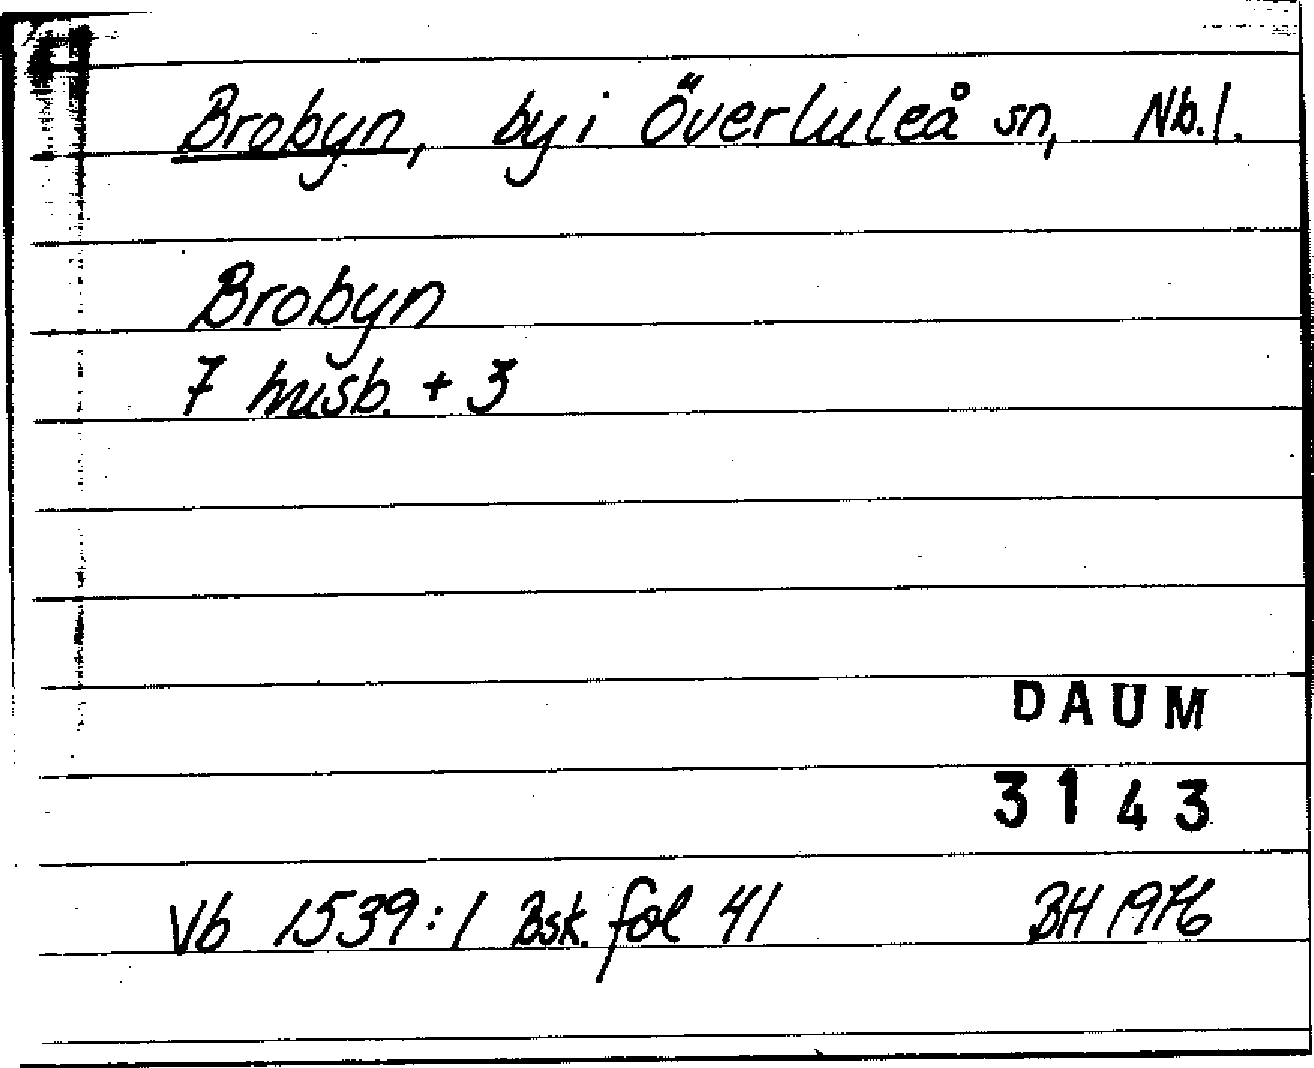 Brobyn, by i Överluleå sn, Nb.l.
Brobyn
7 husb. + 3
DAUM
3143
Vb 1539:1 Bsk. fol 41 BH 1976